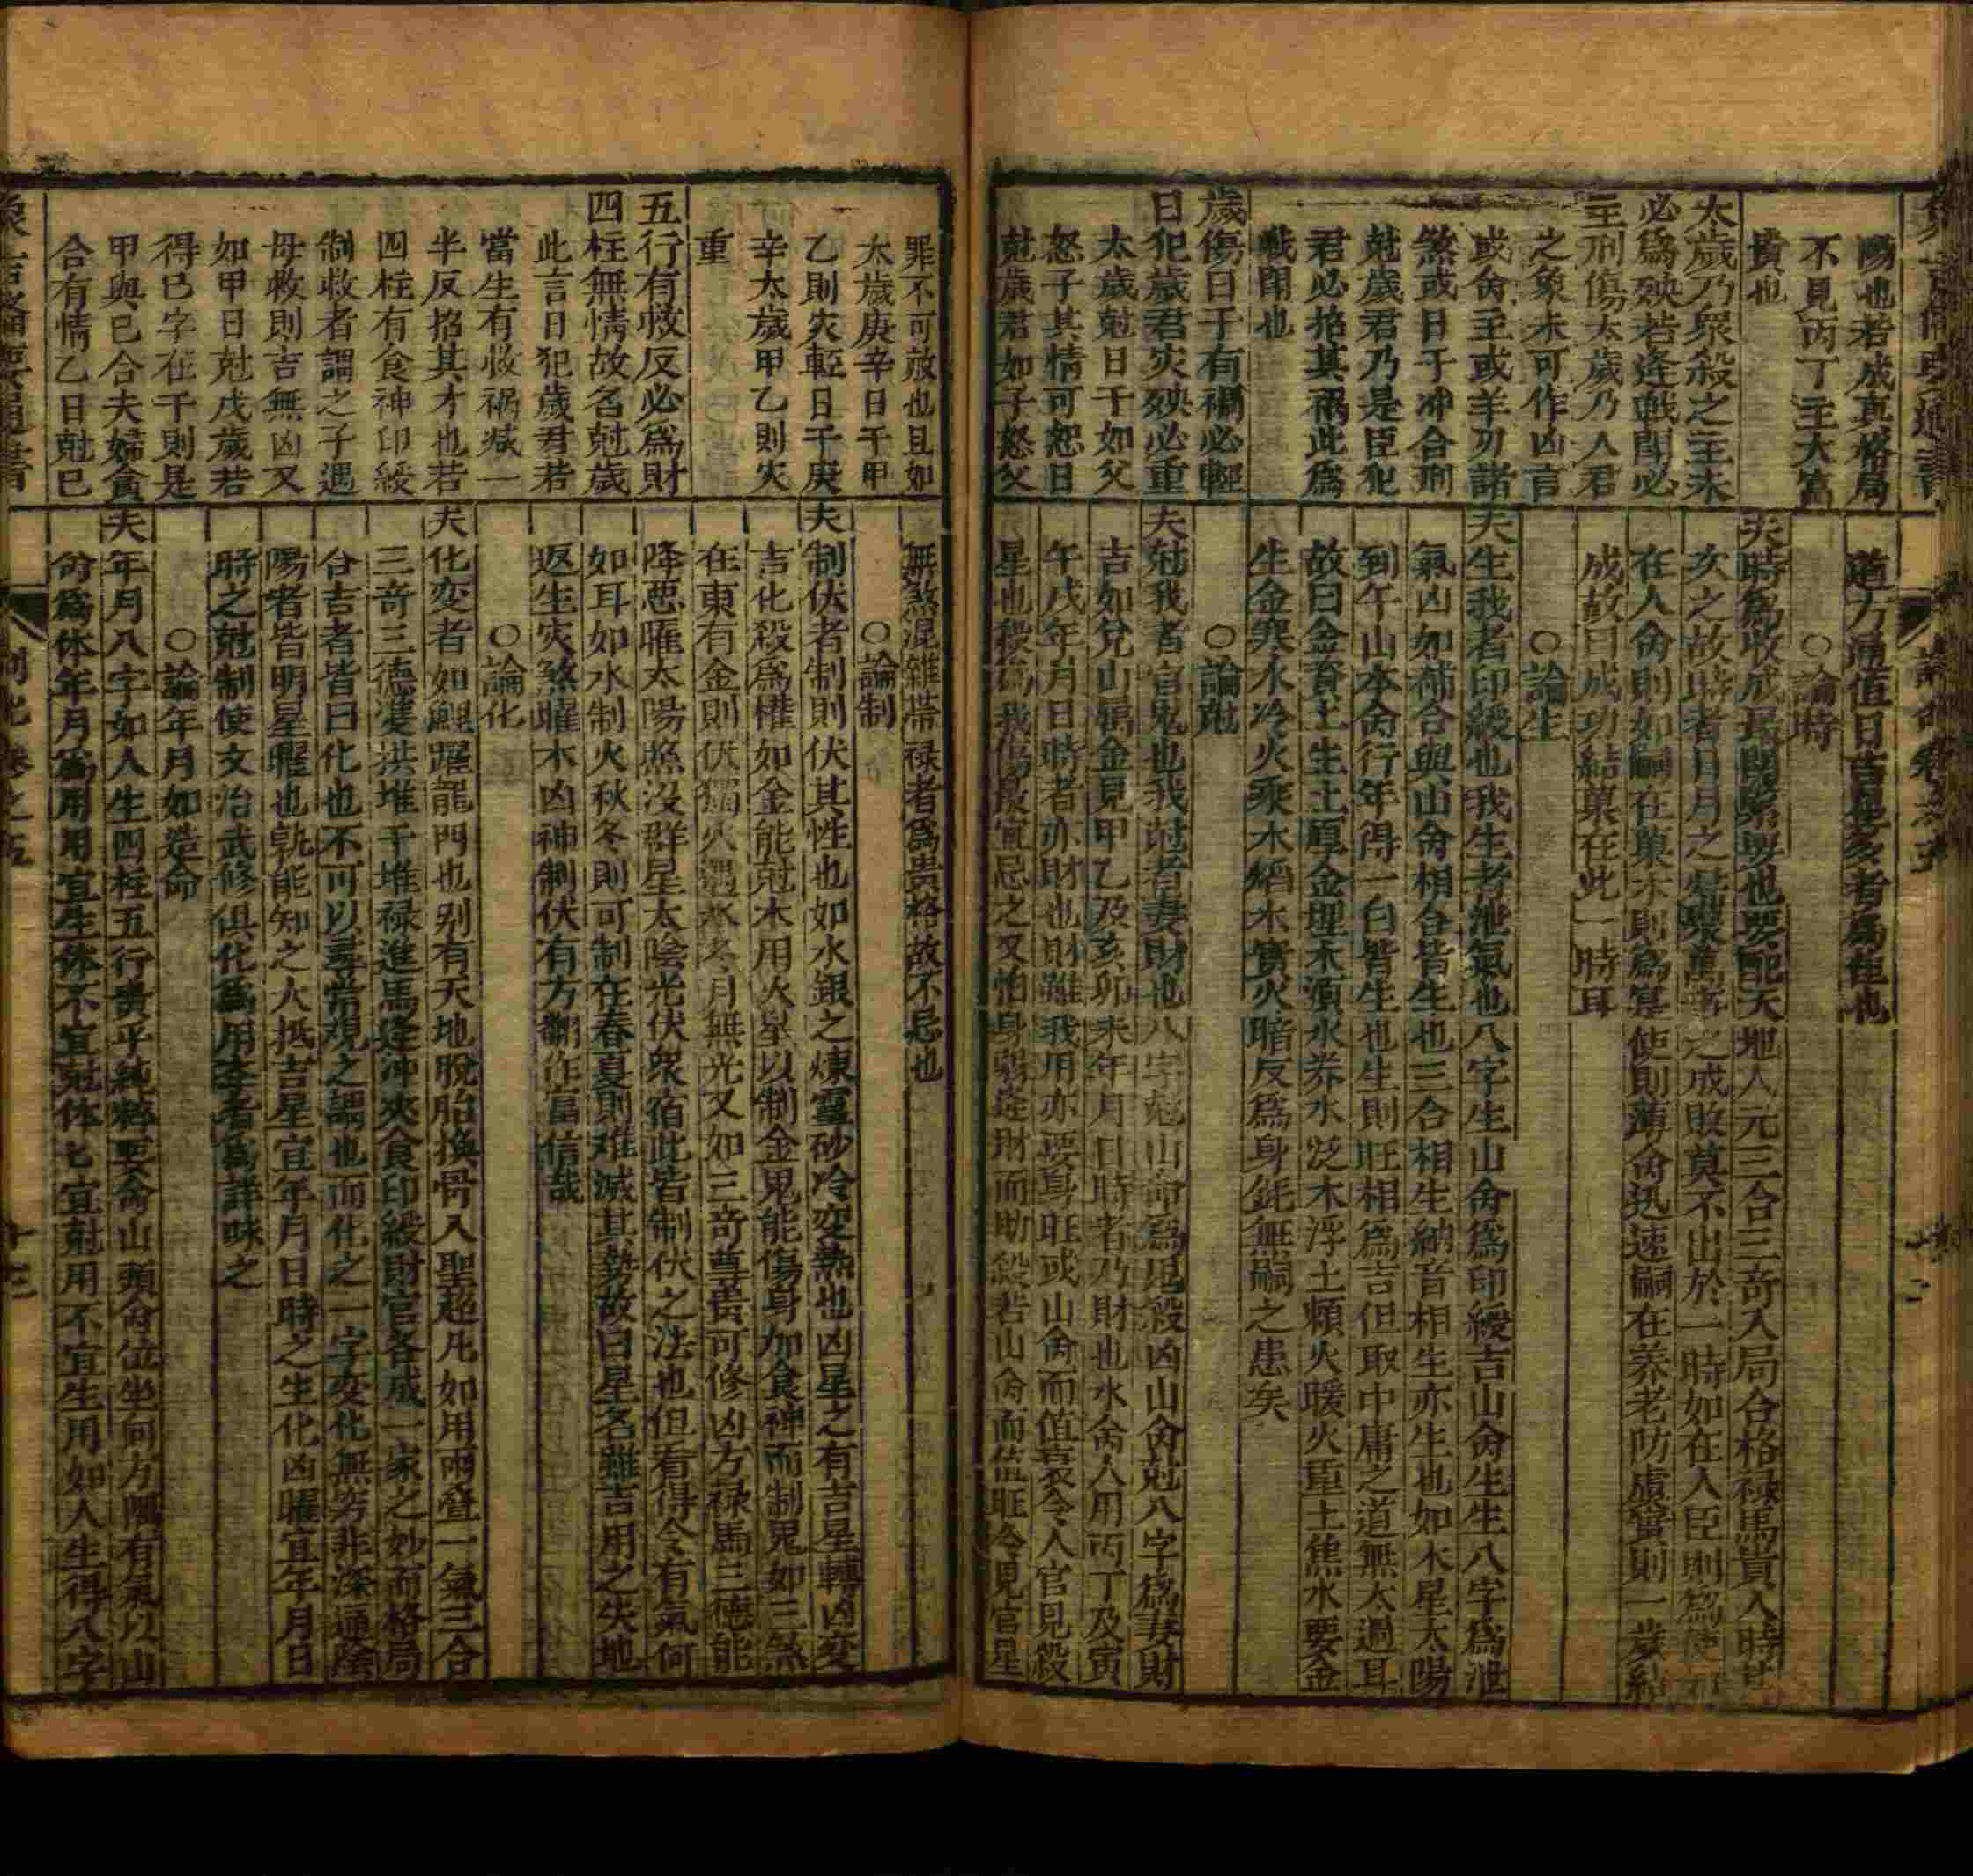 陽也若成真格局
不見丙丁主大富
貴也
太歲乃眾殺之主未
必為殃若逢戰鬪必
主刑傷太歲乃人君
之象未可作凶言
或命主或羊刃諸
煞或日干冲合刑
尅歲君乃是臣犯
君必招其禍此為
戰鬪也
歲傷日干有禍必輕
日犯歲君灾殃必重
太歲尅日干如父
怒子其情可恕日
尅歲君如子怒父
道方通值日吉星多者為佳也
○論時
夫時為收成最關緊要也要配天地人元三合三奇入局合格祿馬貴人時
亥之故時者日月之聚萬事之成敗莫不出於一時如在人臣則為使
在人命則如嗣在菓木則為實使則薄命迅速嗣在养老防虞實則一歲結
成故曰成功結菓在此一時耳
○論生
夫生我者印綬也我生者泄氣也八字生山命為印綬吉山命生生八字為泄
氣凶如補合與山命相合皆生也三合相生納音相生亦生也如木星太陽
到午山本命行年得一白皆生也生則旺相為吉但取中庸之道無太過耳
故曰金賚土生土厚金埋木須水养水泛木浮土賴火暖火重土焦水要金
生金寒水冷火乘木熖木實火暗反為身耗無嗣之患矣
○論尅
夫尅我者官鬼也我尅者妻財也八字尅山命為鬼殺凶山命尅八字為妻財
吉如兌山屬金見甲乙及亥卯未年月日時者乃財也水命人用丙丁及寅
午戌年月日時者亦財也財雖我用亦要身旺或山命而值衰令人官見殺
星也殺為我傷最宜忌之又怕身弱逢財而助殺若山命而值旺令見官星
罪不可赦也且如
太歲庚辛日干甲
乙則灾輕日干庚
辛太歲甲乙則灾
重
五行有救反必為財
四柱無情故名尅歲
此言日犯歲君若
當生有救禍减一
半反招其才也若
四柱有食神印綬
制救者謂之子遇
母救則吉無凶又
如甲日尅戊歲若
得巳字在干則是
甲與巳合夫婦貪
合有情乙日尅巳
無煞混雜帶祿者為貴格故不忌也
○論制
夫制伏者制則伏其性也如水銀之煉靈砂冷变熱也凶星之有吉星轉凶变
吉化殺為權如金能尅木用火星以制金鬼能傷身加食神而制鬼如三煞
在東有金則伏獨火遇水冬月無光又如三奇尊貴可修凶方祿馬三德能
降惡曜太陽照没群星太陰光伏眾宿此皆制伏之法也但看得令有氣何
如耳如水制火秋冬則可制在春夏則难滅其勢故曰星名雖吉用之失地
返生灾煞曜木凶神制伏有方翻作富信哉
○論化
夫化变者如鯉躍龍門也别有天地脫胎換骨入聖超凡如用兩叠一氣三合
三奇三德凄拱堆干堆祿進馬逢冲夾食印綬財官各成一家之妙而格局
合吉者皆曰化也不可以尋常視之謂也而化之一字变化無穷非深通陰
陽者皆明星曜也孰能知之大抵吉星宜年月日時之生化凶曜宜年月日
時之尅制使文治武修俱化為用李者為詳味之
○論年月如造命
夫年月八字如人生四柱五行貴乎純粹要命山頭命位坐向方隅有氣以山
命為体年月為用用宜生体不宜尅体七宜尅用不宜生用如人生得八字